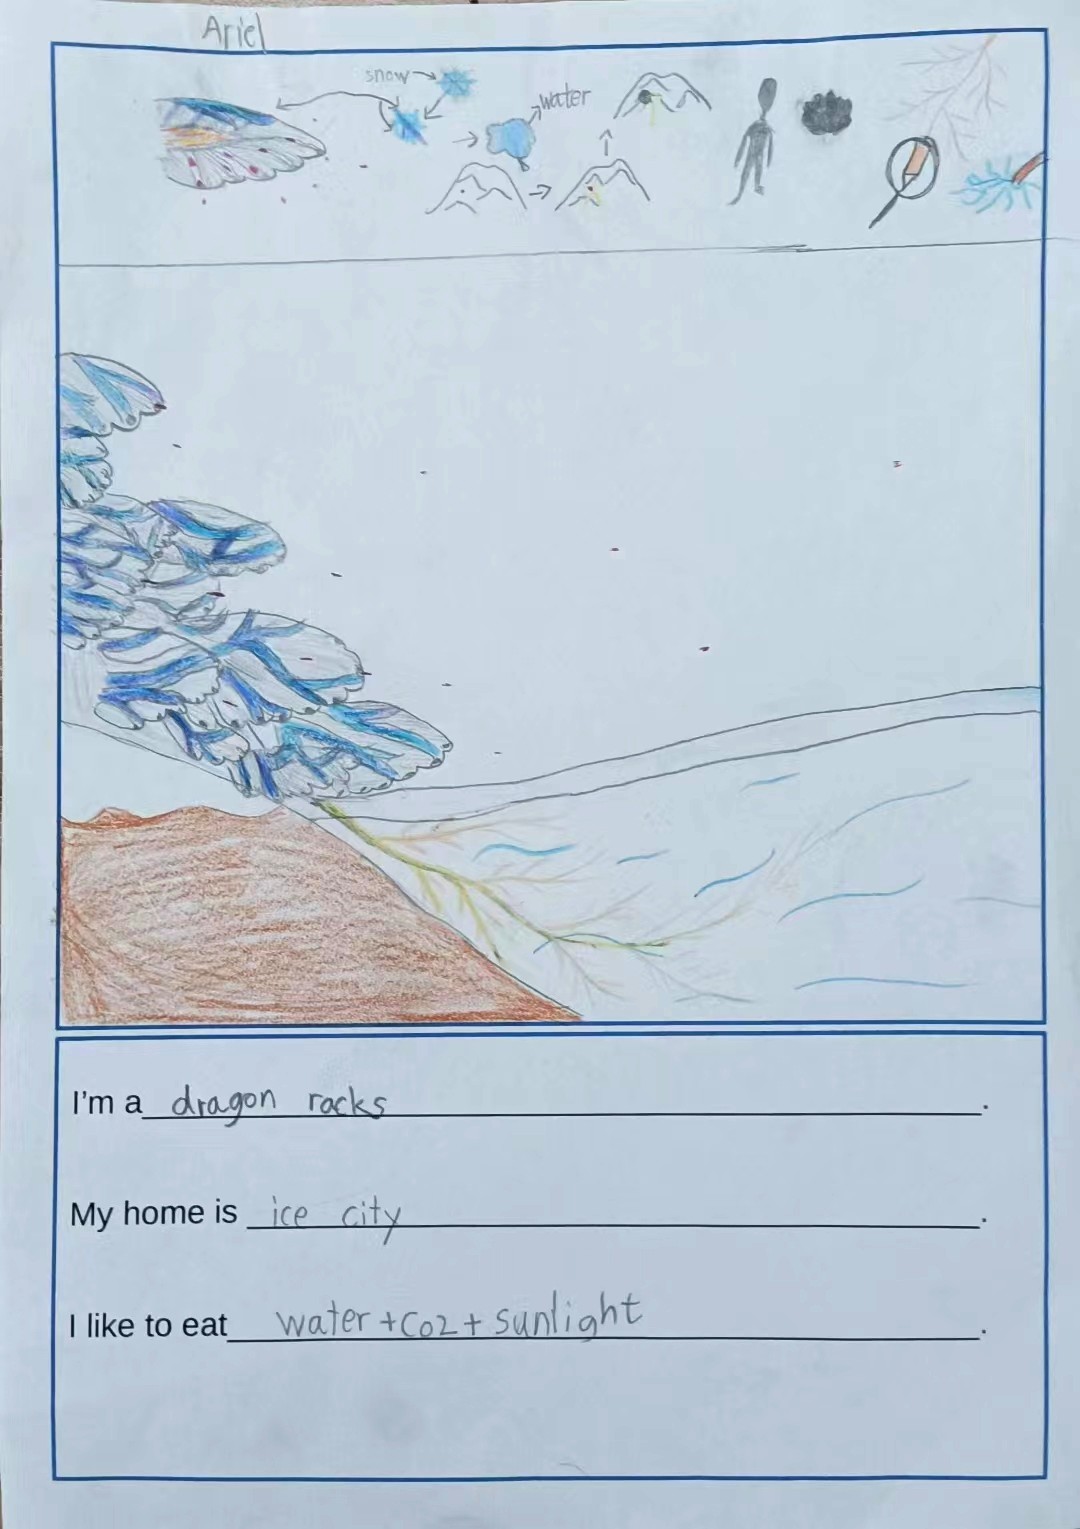 Ariel
snow
water
I'm a dragon racks.
My home is ice city.
I like to eat water+co2+sunlight.